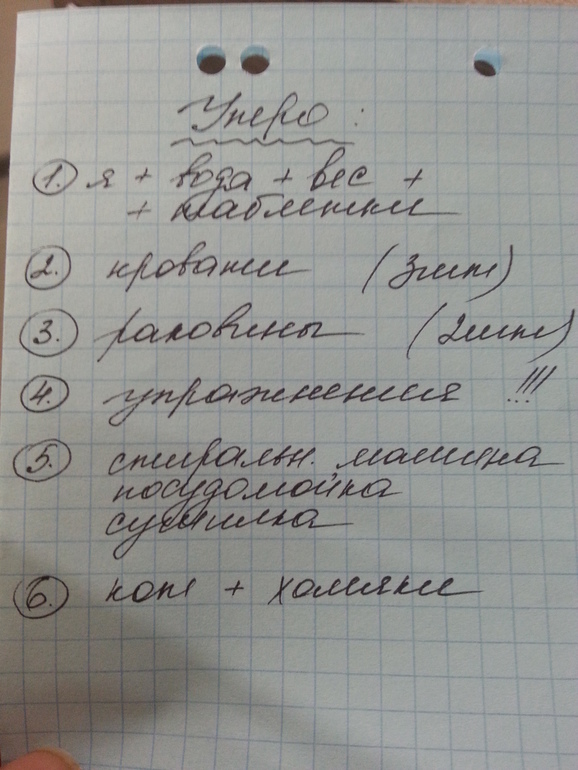 Утро:
1. я + вода + вес +
+ таблетки
2. кровати (3шт)
3. раковины (2шт)
4. упражнения !!!
5. стиральн. машина
посудомойка
сушилка
6. коты + хомяки